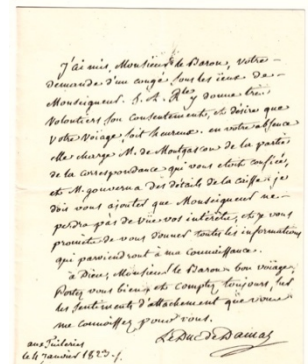 j'ai mis, Monsieur le Baron, votre
demande d'un congé sous les ïeux de
Monseigneur. S. A. Rle y donne très
volontiers son consentement, et désire que
votre voïage soit heureux. en votre absence
elle charge M. de Montgascon de la partie
de la correspondance qui vous etoit confiée,
et M. gouverna des détails de la caisse. je
dois vous ajouter que Monseigneur ne
perdra pas de vüe vos intérêts, et j'y vous
promets de vous donner toutes les informations
qui parviendront à ma connoissance.
à Dieu, Monsieur le Baron, bon voïage.
Portez vous bien et comptez toujours sur
les sentiments d'attachement que vous
me connoissez pour vous.
Le Duc de Damas
aux Tuileries
le 4 janvier 1823.